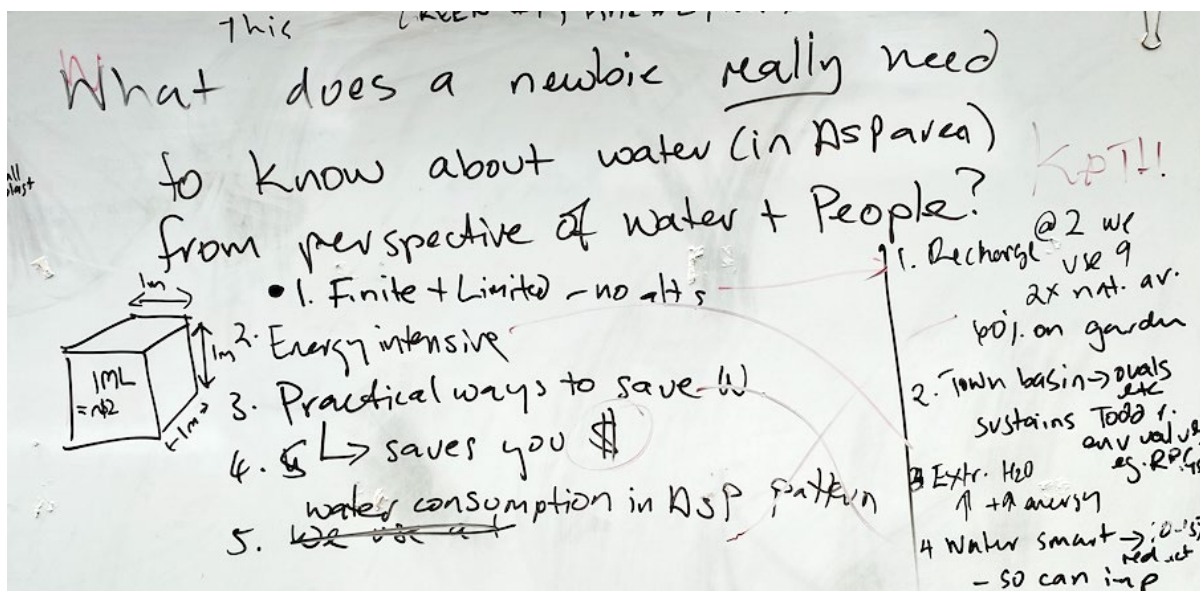 This
What does a newbie really need
to know about water (in ASP area)
from perspective of Water + People?
• 1. Finite + Limited - no alt's
2. Energy intensive
3. Practical ways to save W
4. ↳ saves you $
water consumption in ASP pattern
5.
1m
1m
1m
1ML
KPT!!
1. Recharge @ 2 we
use 9
2x nat. av.
60% on garden
2. Town basin → ovals
etc
sustains Todd r.
env value
eg. RRG
Extr. H2O
↑ + ↑ energy
4 Water smart →
reduct
- so can imp